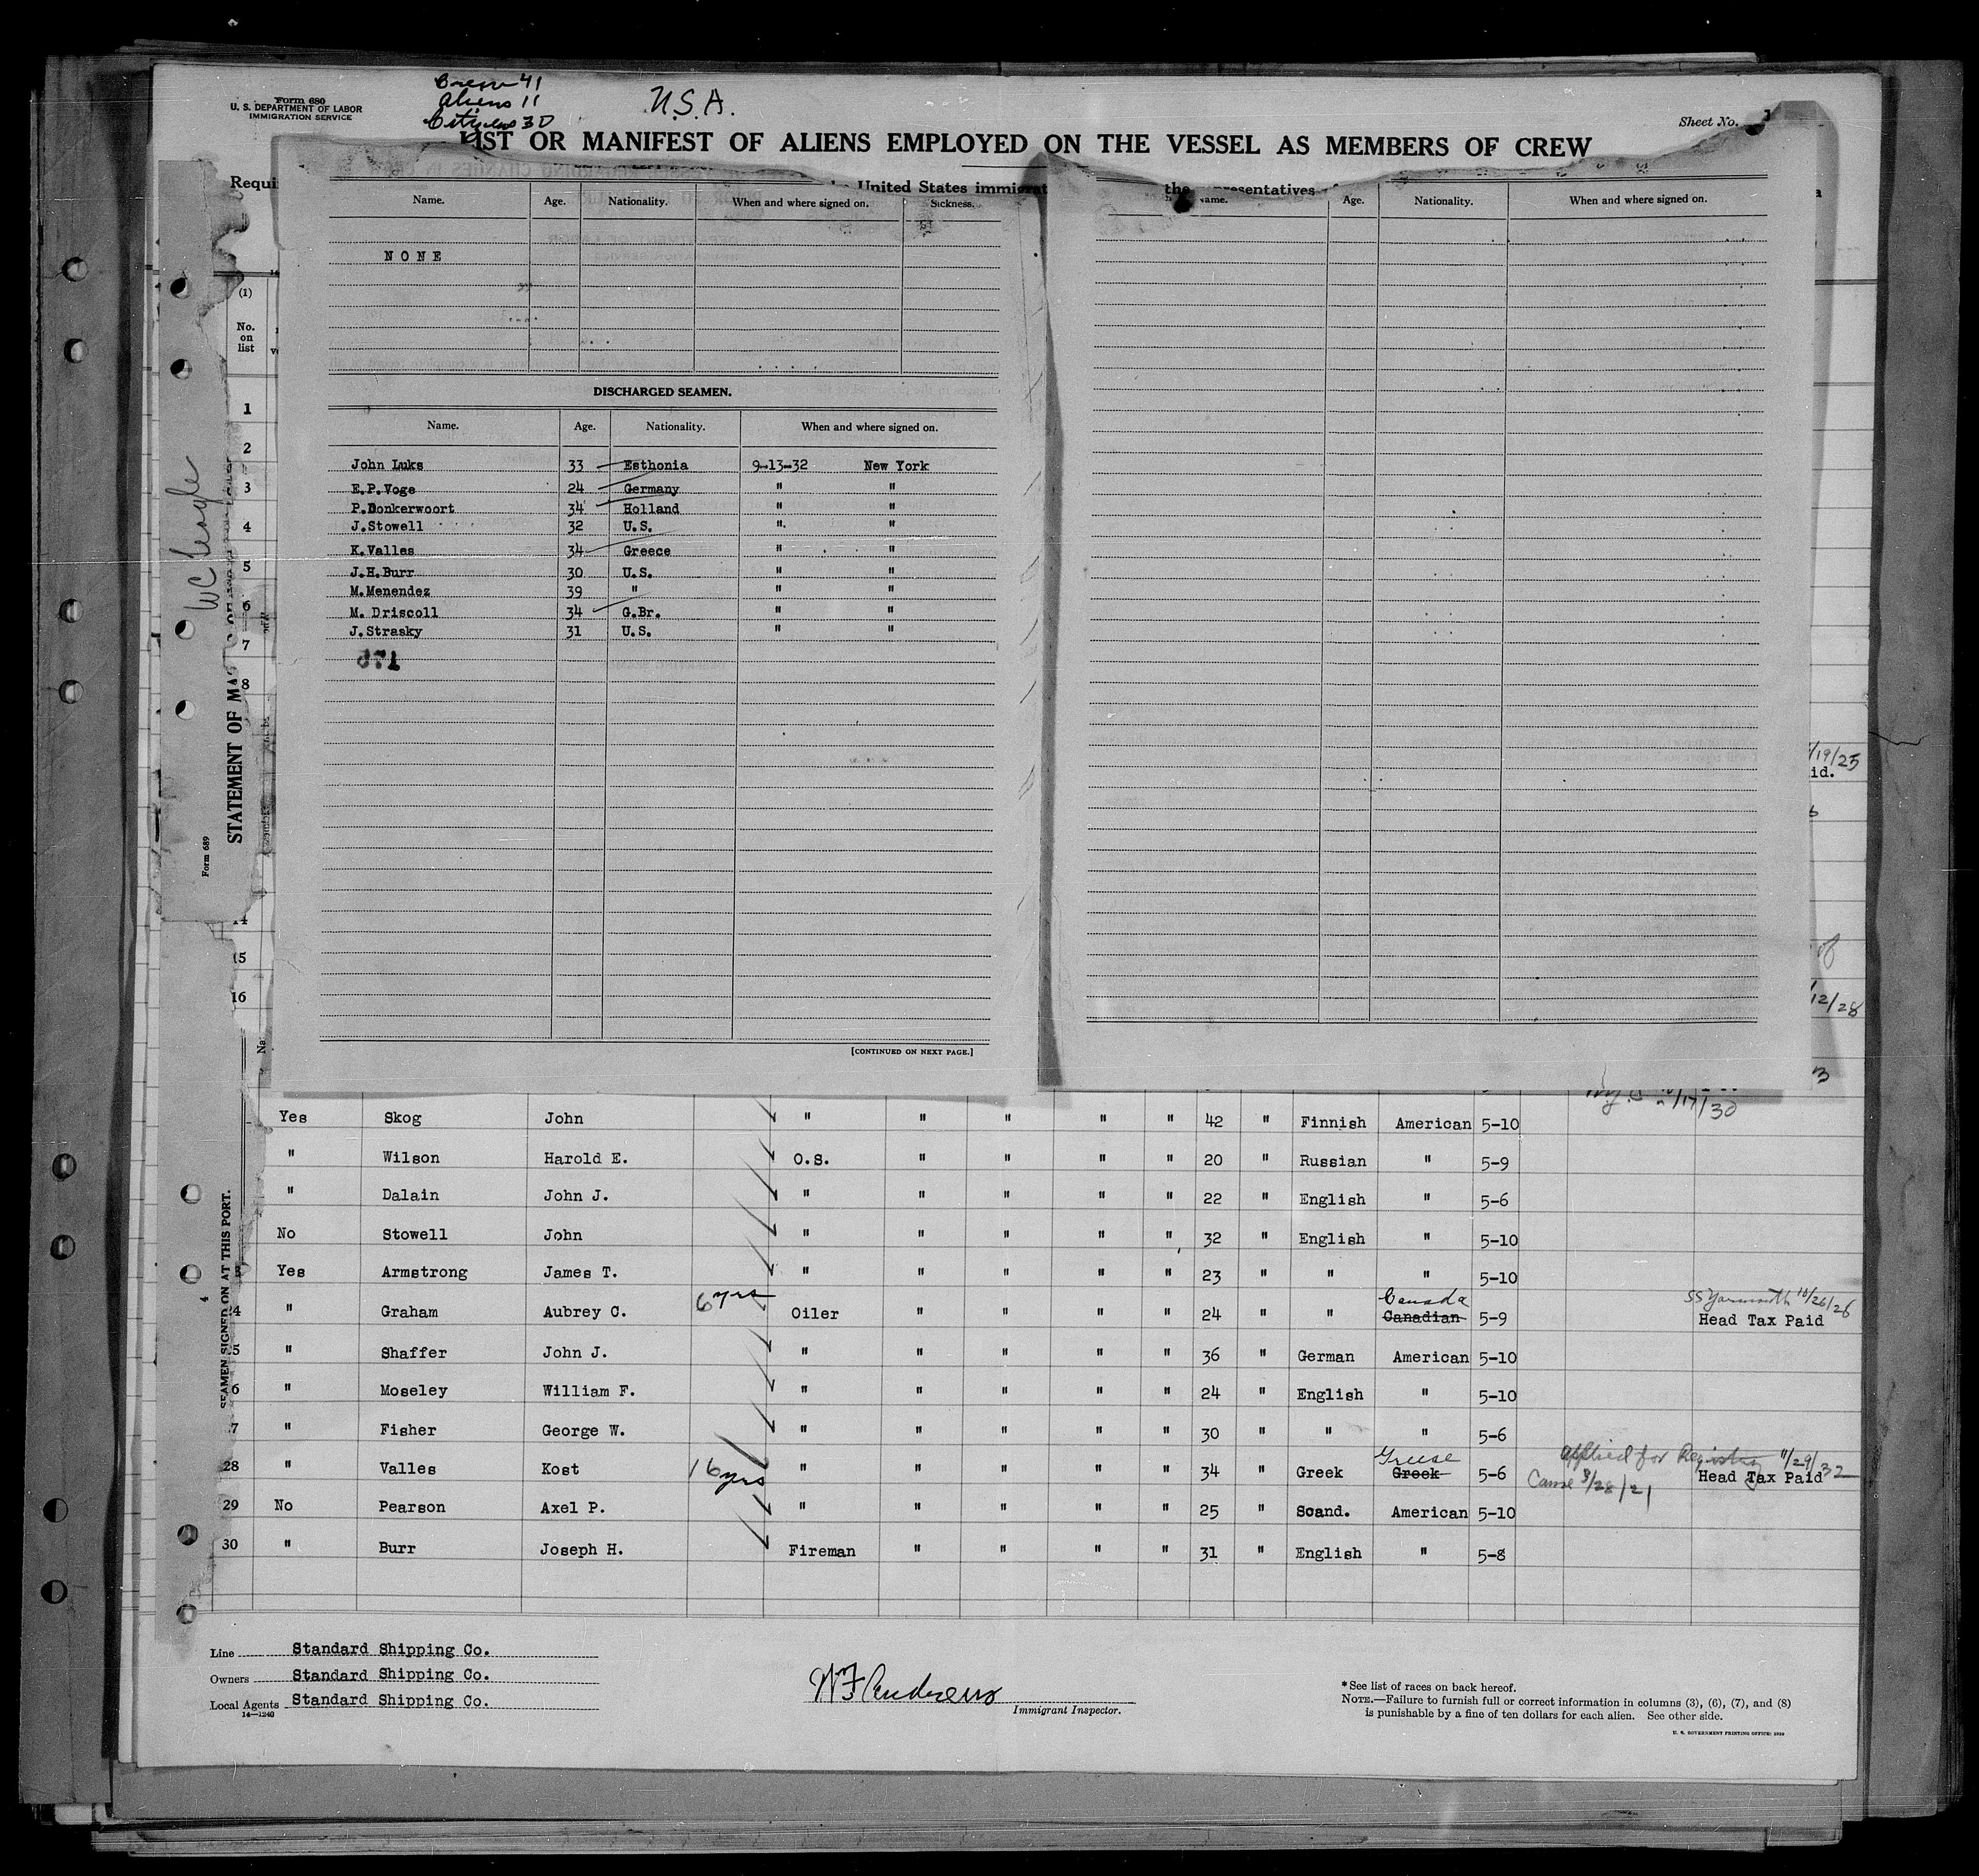 Form 680
U. S. DEPARTMENT OF LABOR
IMMIGRATION SERVICE
Crew 41
Aliens 11
Citizens 30
U.S.A.
Sheet No.
LIST OR MANIFEST OF ALIENS EMPLOYED ON THE VESSEL AS MEMBERS OF CREW
Requi
United States immigrat
the
representatives
Name. Age. Nationality. When and where signed on. Sickness.
NONE
DISCHARGED SEAMEN.
Name. Age. Nationality. When and where signed on.
John Luks 33 Esthonia 9-13-32 New York
E.P.Voge 24 Germany " "
P.Donkerwoort 34 Holland " "
J.Stowell 32 U.S. " "
K.Valles 34 Greece " "
J.H.Burr 30 U.S. " "
M.Menendez 39 " " "
M. Driscoll 34 G.Br. " "
J.Strasky 31 U.S. " "
671
[CONTINUED ON NEXT PAGE.]
Name. Age. Nationality. When and where signed on.
(1)
No. on list
1
2
3
4
5
6
7
8
15
16
STATEMENT OF MAS
Form 689
SEAMEN SIGNED ON AT THIS PORT.
4
/19/25
id.
of
/12/28
/17/30
Yes Skog John " " " " " 42 " Finnish American 5-10
" Wilson Harold E. O.S. " " " " 20 " Russian " 5-9
" Dalain John J. " " " " " 22 " English " 5-6
No Stowell John " " " " " 32 " English " 5-10
Yes Armstrong James T. " " " " " 23 " " " 5-10
4 " Graham Aubrey C. 6 yrs Oiler " " " " 24 " " Canada Canadian 5-9 SS Yarmouth 10/26/26 Head Tax Paid
5 " Shaffer John J. " " " " " 36 " German American 5-10
6 " Moseley William F. " " " " " 24 " English " 5-10
7 " Fisher George W. " " " " " 30 " " " 5-6
28 " Valles Kost 16 yrs " " " " " 34 " Greek Greese Greek 5-6 Applied for Registry 11/29/32 Came 8/28/21 Head Tax Paid
29 No Pearson Axel P. " " " " " 25 " Scand. American 5-10
30 " Burr Joseph H. Fireman " " " " 31 " English " 5-8
Line Standard Shipping Co.
Owners Standard Shipping Co.
Local Agents Standard Shipping Co.
14—1240
WF Andrews
Immigrant Inspector.
* See list of races on back hereof.
NOTE.—Failure to furnish full or correct information in columns (3), (6), (7), and (8)
is punishable by a fine of ten dollars for each alien. See other side.
U. S. GOVERNMENT PRINTING OFFICE: 1930